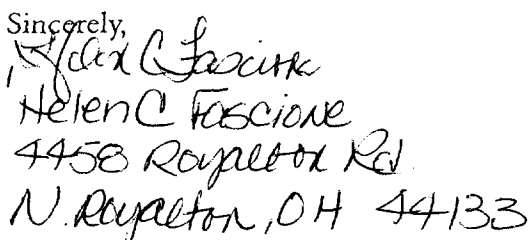 Sincerely,
Helen C Fascione
Helen C Fascione
4458 Royalton Rd
N. Royalton, OH 44133